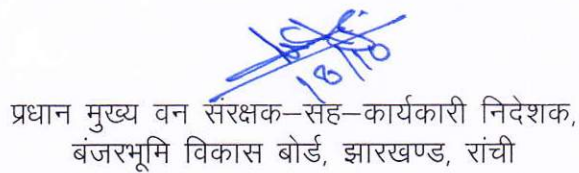 18/10
प्रधान मुख्य वन संरक्षक–सह–कार्यकारी निदेशक,
बंजरभूमि विकास बोर्ड, झारखण्ड, रांची